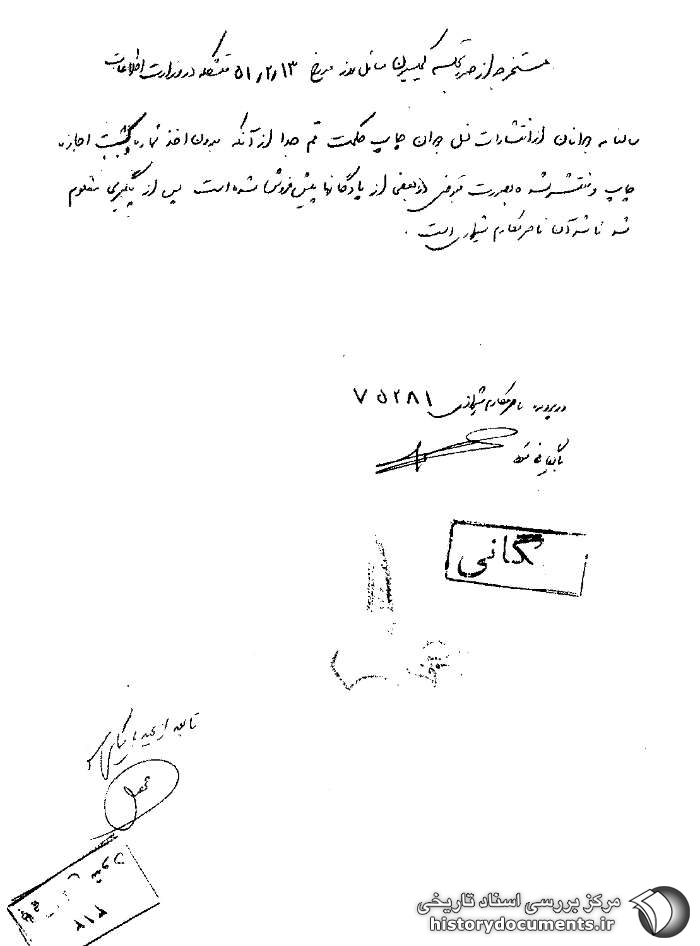 مستخرجه از صورتجلسه کمیسیون مسائل روز مورخ ۵۱٫۲٫۱۳ متشکله در وزارت اطلاعات
سالنامه جوانان از انتشارات نسل جوان چاپ حکمت قم جدا از آنکه بدون اخذ شماره ثبت اجازه
چاپ و منتشر شده بصورت متفرقی در بعضی از پادگانها پیش فروش شده است پس از پیگیری معلوم
شد ناشر آن ناصر مکارم شیرازی است .
در پرونده ناصر مکارم شیرازی ۷۵۲۸۱
بایگانی شود
گانی
۳۱۲
مرکز بررسی اسناد تاریخی
historydocuments.ir